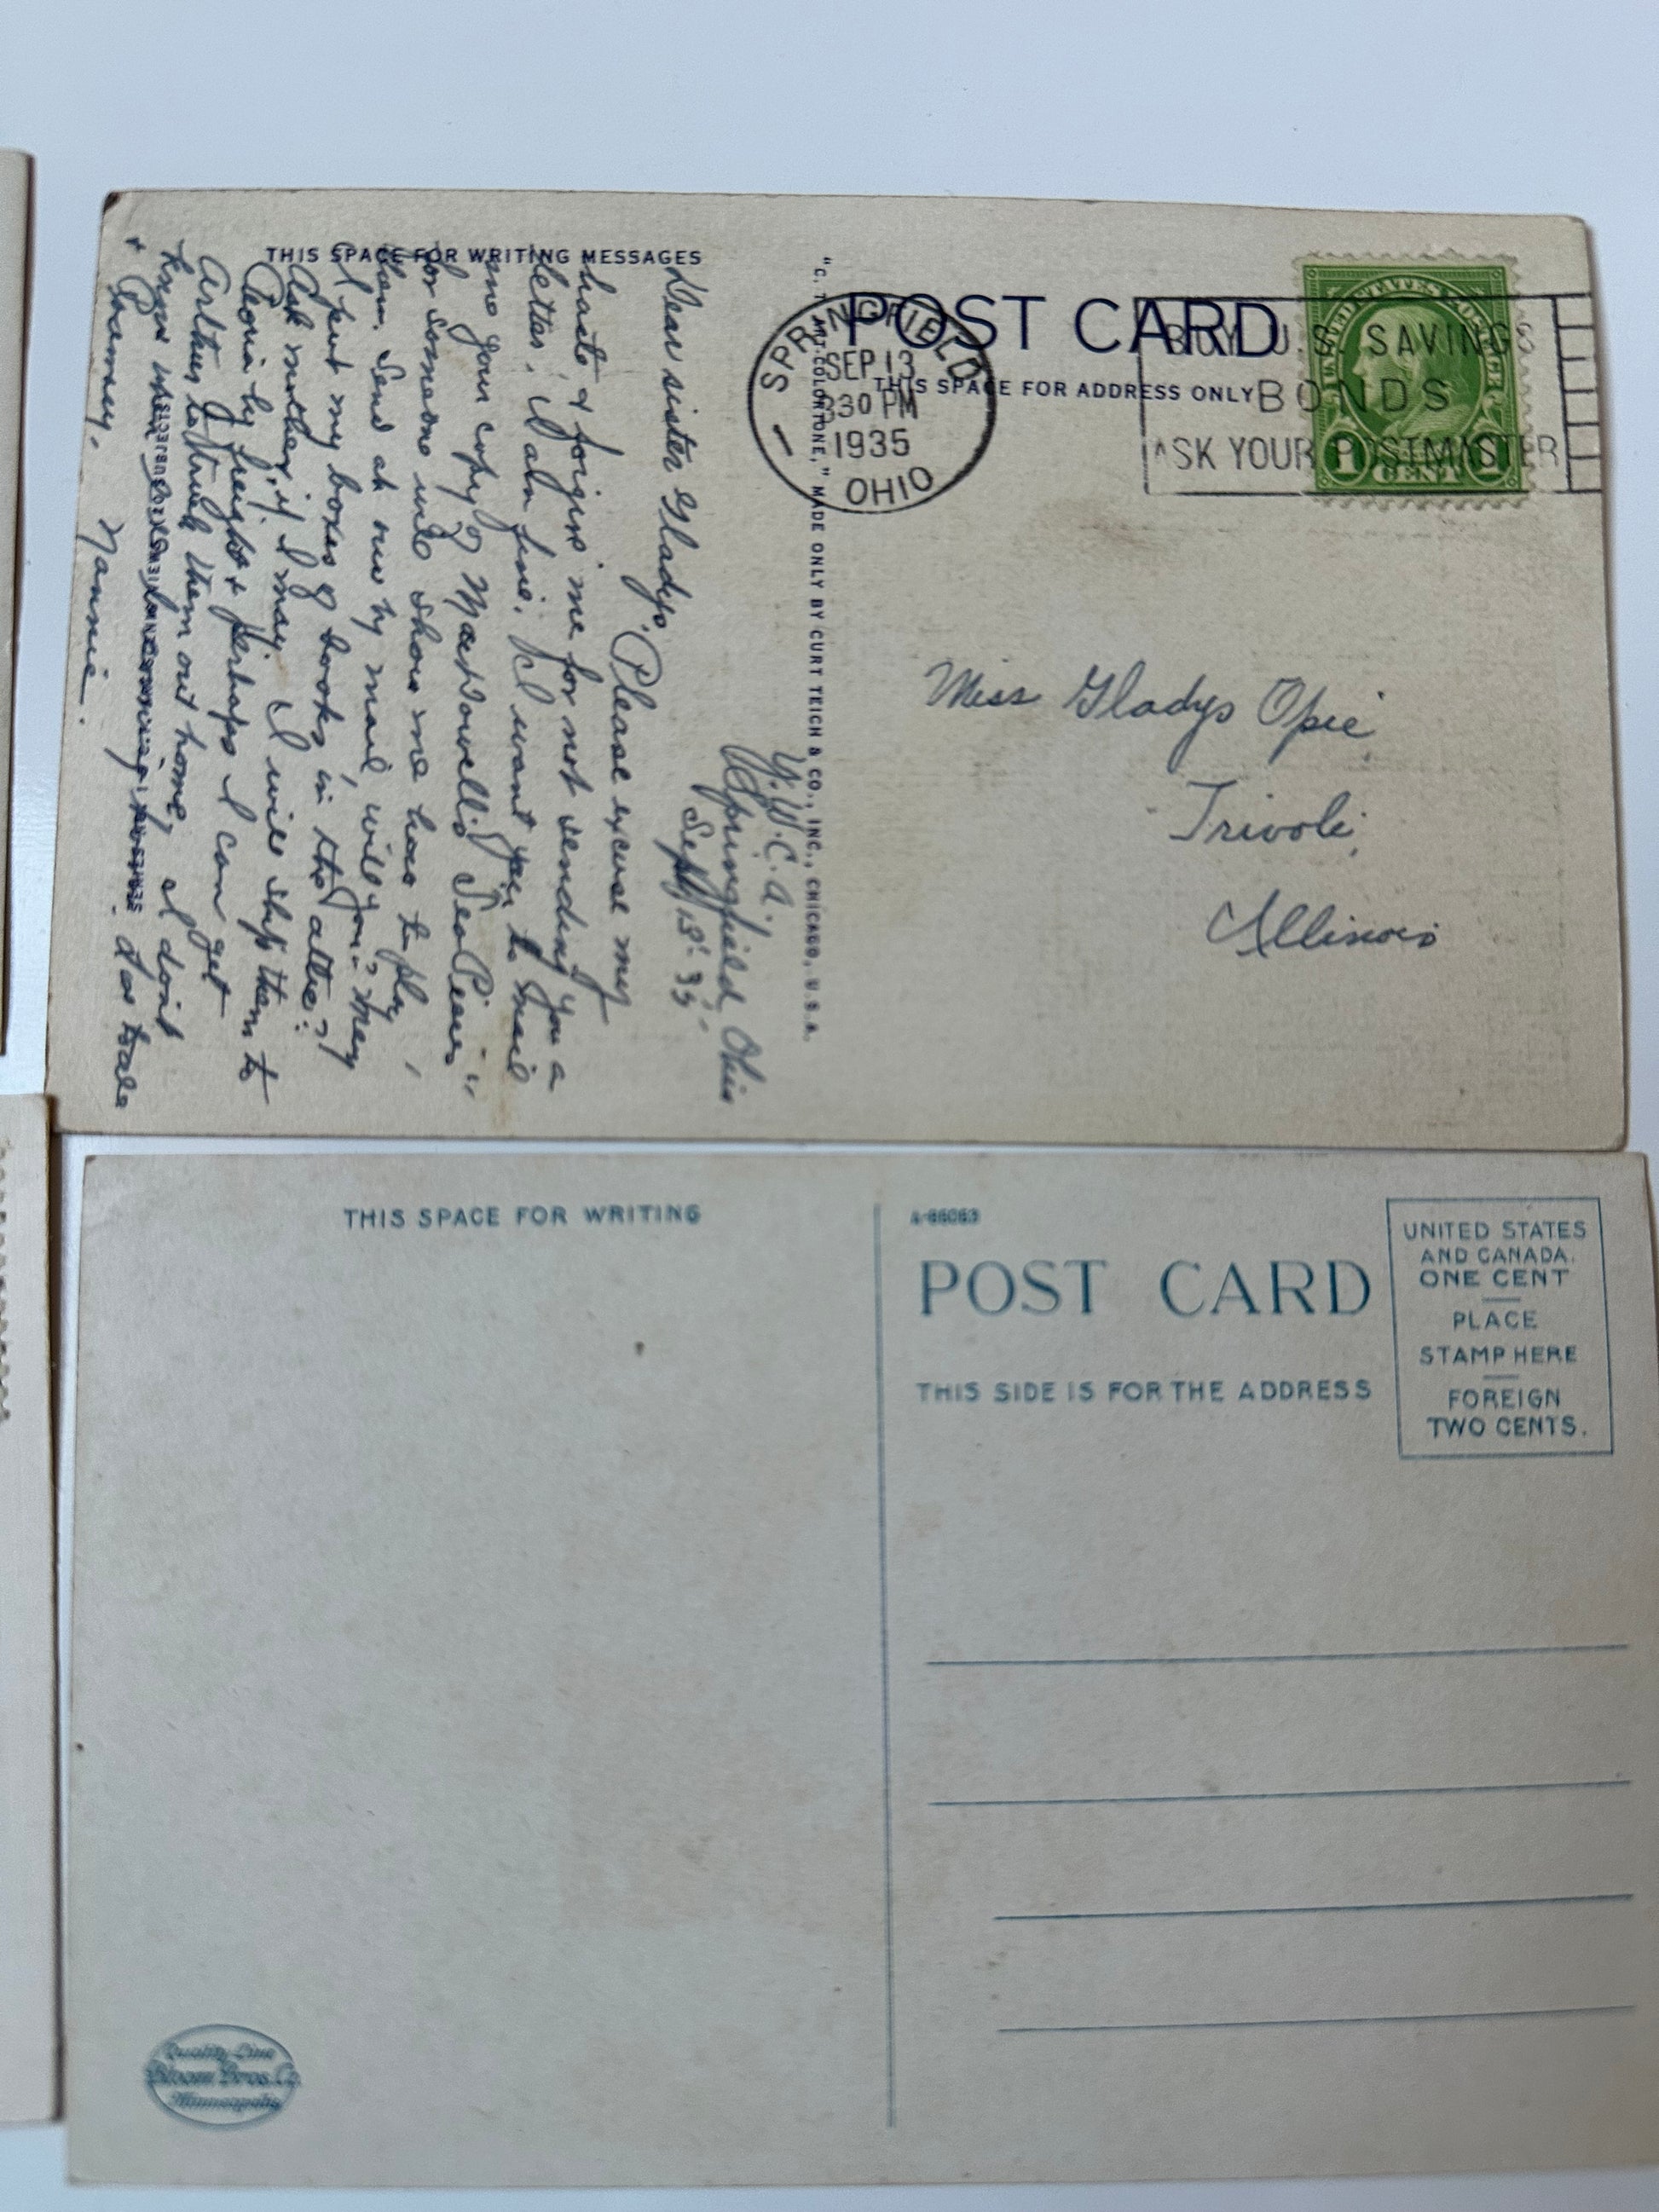 THIS SPACE FOR WRITING MESSAGES
Y.W.C.A.
Springfield, Ohio
Sept 13, '35.
Dear sister Gladys,
Please excuse my
haste & forgive me for not sending you a
letter. I am fine. I want you to mail
me your copy of MacDowell's "Sea Pieces"
for someone who shows me how to play
them. Send at once by mail, will you? They
I put my boxes of books in the attic?
Ask mother, if I may. I will ship them to
Peoria by freight & perhaps I can get
Arthur to truck them out home. I don't
know when
& Ramsey. Nannie.
"C. T. ART-COLORTONE," MADE ONLY BY CURT TEICH & CO., INC., CHICAGO, U.S.A.
POST CARD
THIS SPACE FOR ADDRESS ONLY
SPRINGFIELD
SEP 13
330 PM
1935
OHIO
1
BUY U.S. SAVINGS
BONDS
ASK YOUR POSTMASTER
UNITED STATES POSTAGE
1 CENT 1
Miss Gladys Opie
Trivoli,
Illinois
THIS SPACE FOR WRITING
A-66063
POST CARD
THIS SIDE IS FOR THE ADDRESS
UNITED STATES
AND CANADA.
ONE CENT
PLACE
STAMP HERE
FOREIGN
TWO CENTS.
Quality Line
Bloom Bros. Co.
Minneapolis